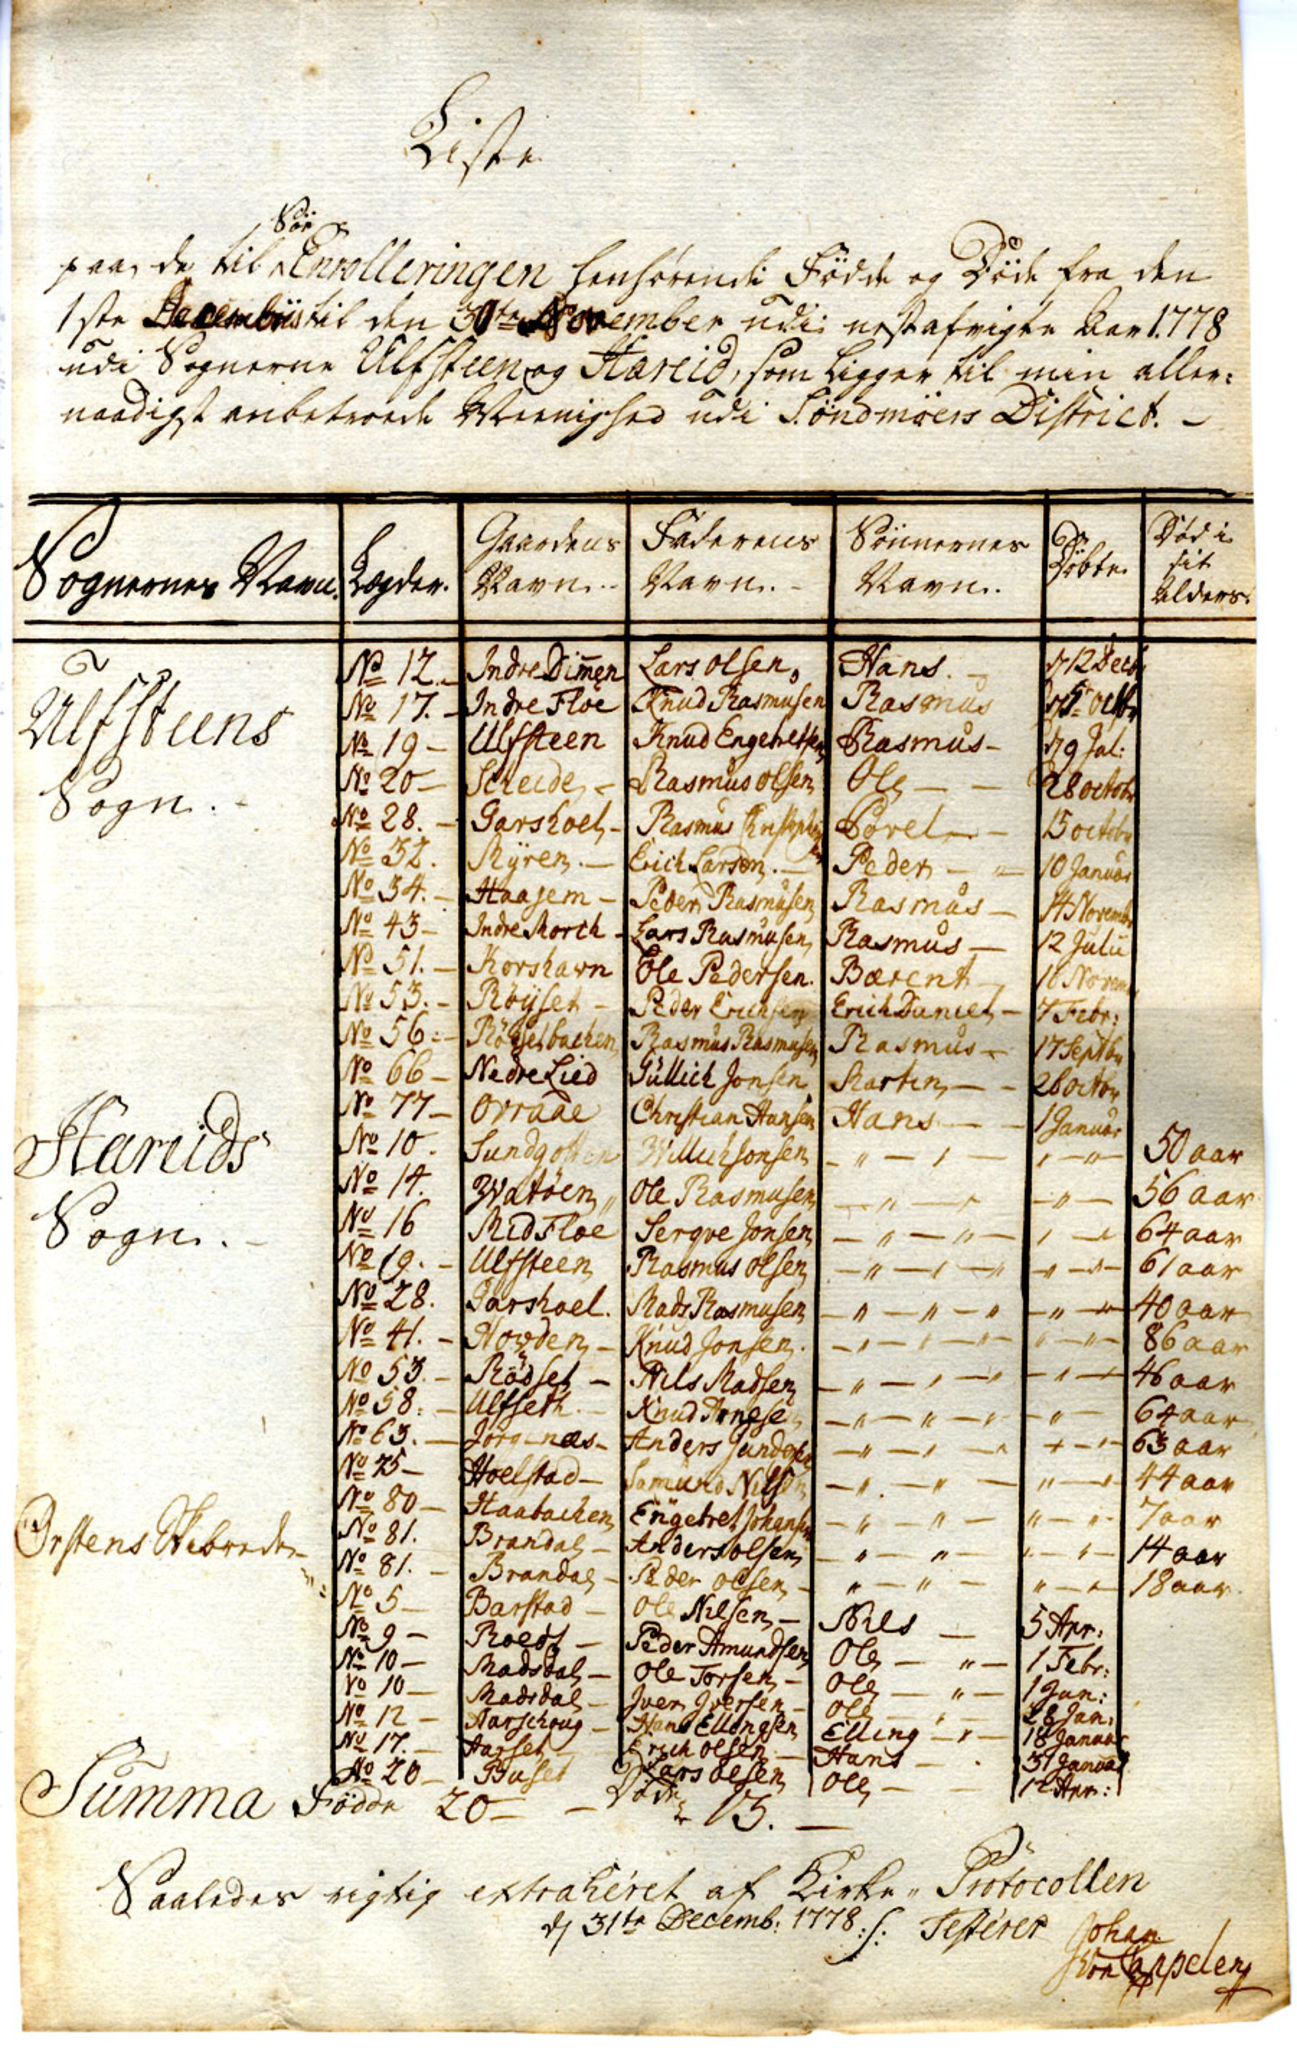 Liste
Søe
paa de til Enrolleringen henhørende Fødde og Døde fra den
1ste Decembris til den 30te November udi nestafvigte Aar 1778
udi Sognerne Ulfsteen og Hareid, som Ligger til min aller-
naadigst anbetroede Meenighed udi Söndmöers District. -
Sognernes Navn. Lægder. Gaardens Navn. Faderens Navn. Sönnernes Navn. Döbte. Död i sit Alders.
Ulfsteens Sogn.
No 12. Indre Dimen Lars Olsen Hans. d 12 Decb
No 17. Indre Floe Knud Rasmusen Rasmus octbr
No 19 Ulfsteen Knud Engebretsen Rasmus d 9 Jul:
No 20 Rasmus Olsen Ole 28 octobr
No 28. Garshoel Rasmus Povel 15 octobr
No 32. Myren Erich Larsen Peder 10 Januar
No 34. Haagem Peder Rasmusen Rasmus 14 Novembr
No 43 Indre Mork Lars Rasmusen Rasmus 12 Julii
No 51. Korshavn Ole Pedersen. Bærent Novem
No 53. Röyset Peder Erichsen Erich Daniel 7 Febr:
No 56 Röysetbachen Rasmus Rasmusen Rasmus 17 Septbr
No 66 Nedre Lied Gullich Jonsen Marten 26 octbr
No 77 Ovraae Christian Hansen Hans 1 Januar
Hareids Sogn.
No 10. Sundgotten Willich Jonsen 50 aar
No 14. Ole Rasmusen 56 aar
No 16 Mid Floe Serqve Jonsen 64 aar
No 19. Ulfsteen Rasmus Olsen 61 aar
No 28. Garshoel. Mads Rasmusen 40 aar
No 41. Hovden Knud Jonsen. 86 aar
No 53. Rödset Nils Madsen 46 aar
No 58. Ulfseth Knud Arnesen 64 aar
No 63. Jörgnæs Anders 63 aar
No 75 Hoelstad Samund Nilsen 44 aar
No 80 Haabachen Engebret Johansen 7 aar
No 81. Brandal Anders Olsen 14 aar
No 81. Brandal Peder Olsen 18 aar
Ørstens
No 5 Barstad Ole Nilsen Nils 5 Apr:
No 9 Peder Amundsen Ole 1 Febr:
No 10 Madsdal Ole Torsen Ole 1 Jan:
No 10 Madsdal Iver Iversen Ole 28 Jan:
No 12 Aarschoug Hans Ellingsen Elling 18 Januar
No 17. Aarset Erich Olsen Hans 31 Januar
No 20 Buset Lars Olsen Ole 12 Apr:
Summa Födde 20 - Döde 13. -
Saaledes rigtig extraheret af Kirke-Protocollen
d 31te Decemb: 1778 :/: Testerer Johan
von Cappelen